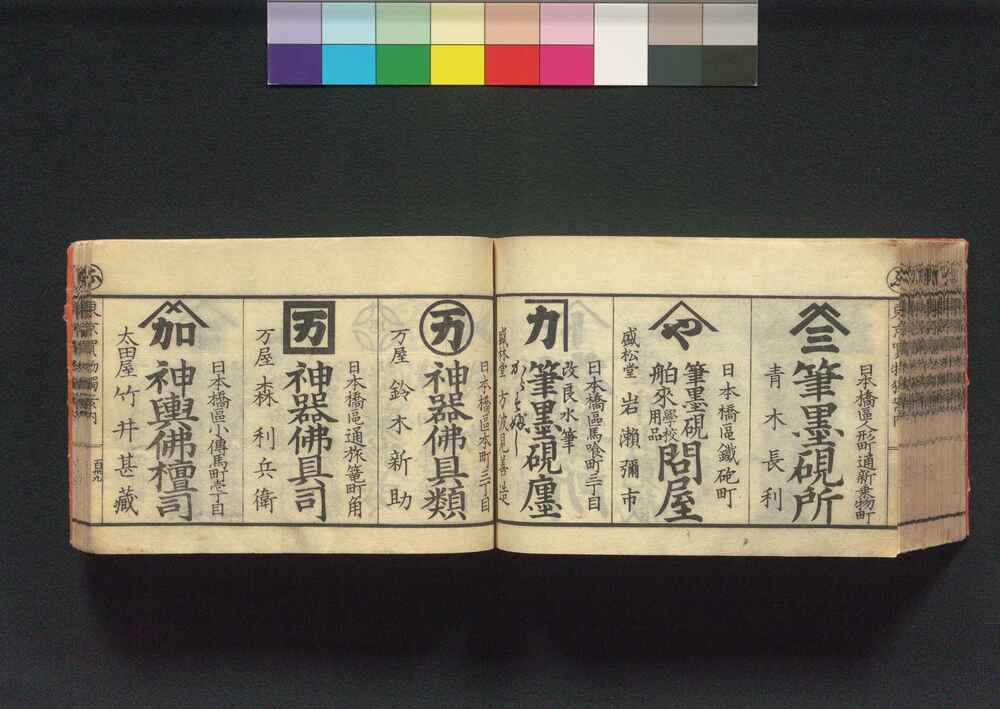 日本橋區人形町通新乗物町
三
筆墨硯所
青木長利
日本橋區鐵砲町
や
筆墨硯
舶來學校用品
問屋
盛松堂 岩瀬彌市
日本橋區馬喰町三丁目
改良水筆
カ
筆墨硯廛
からすみなし
盛林堂
日本橋區本町三丁目
万
神器佛具類
万屋 鈴木新助
日本橋區通旅篭町角
万
神器佛具司
万屋 森利兵衛
日本橋區小傳馬町壱丁目
加
神輿佛檀司
太田屋 竹井甚藏
東京買物獨案内